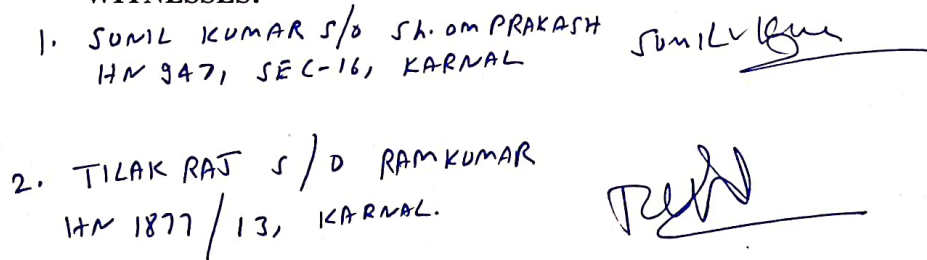 WITNESSES:
1. SUNIL KUMAR S/o Sh. om PRAKASH
HN 947, SEC-16, KARNAL
Sunil Kumar
2. TILAK RAJ S/O RAM KUMAR
HN 1877/13, KARNAL.